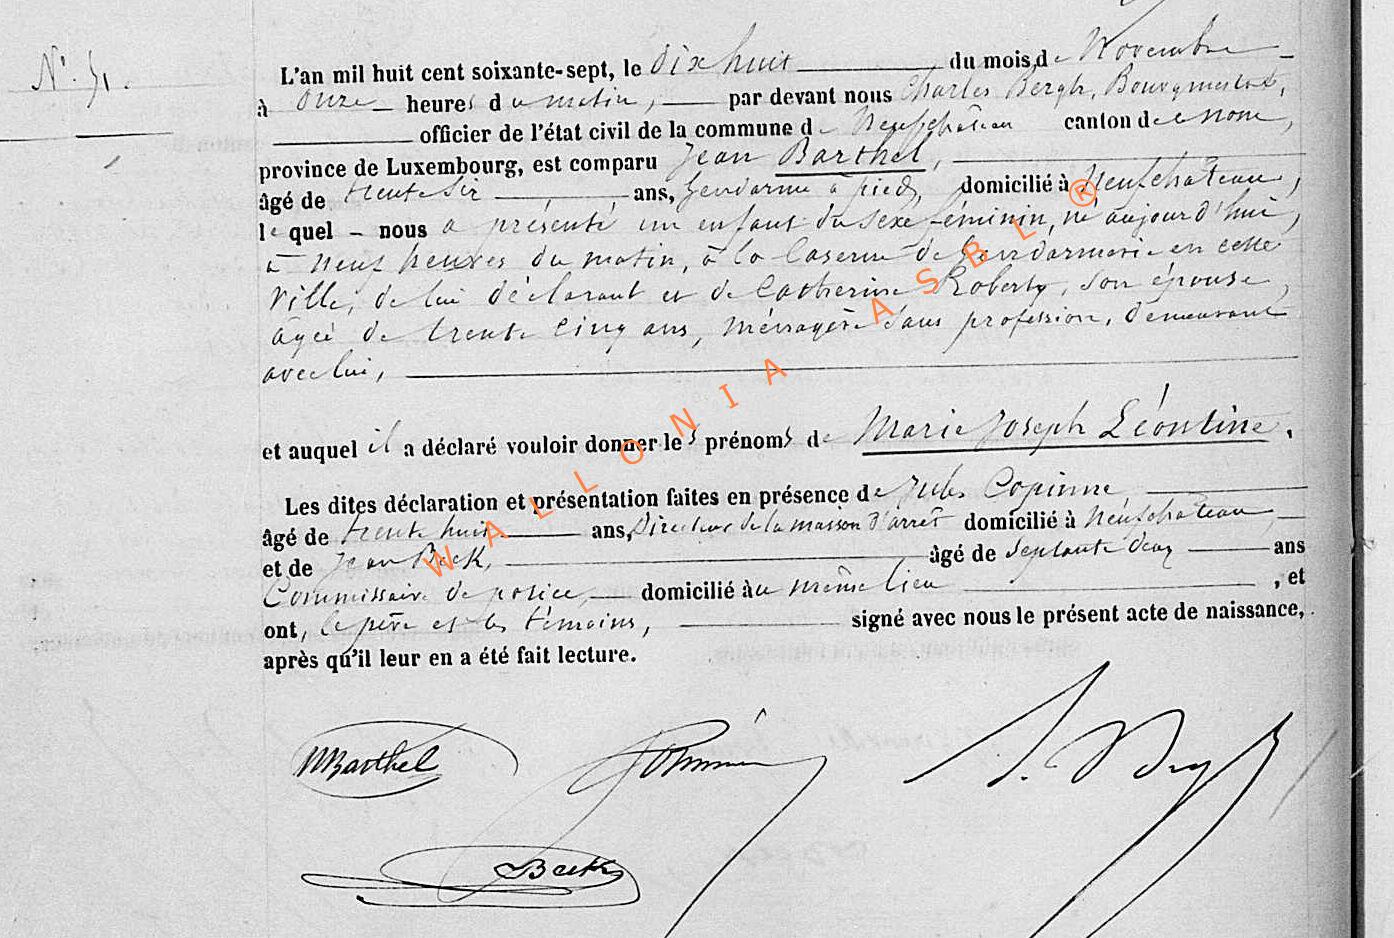 N°. 51.
L'an mil huit cent soixante-sept, le dix huit du mois de Novembre
à onze heures du matin, par devant nous Charles Bergh, Bourgmestre,
officier de l'état civil de la commune de Neufchâteau canton de ce nom,
province de Luxembourg, est comparu Jean Barthel,
âgé de trente six ans, Gendarme à pied, domicilié à Neufchâteau,
le quel - nous a présenté un enfant du sexe féminin, né aujourd'hui,
à neuf heures du matin, à la Caserne de Gendarmerie en cette
ville, de lui déclarant et de Catherine Roberty, son épouse,
âgée de trente cinq ans, ménagère sans profession, demeurant
avec lui,
et auquel il a déclaré vouloir donner les prénoms de Marie Joseph Léontine.
Les dites déclaration et présentation faites en présence de Jules Copinne,
âgé de trente huit ans, Directeur de la maison d'arrêt domicilié à Neufchâteau,
et de Jean Beck, âgé de septante deux ans
Commissaire de police, domicilié au même lieu, et
ont, le père et les témoins, signé avec nous le présent acte de naissance,
après qu'il leur en a été fait lecture.
Barthel
Beck
WALLONIA ASBL ®